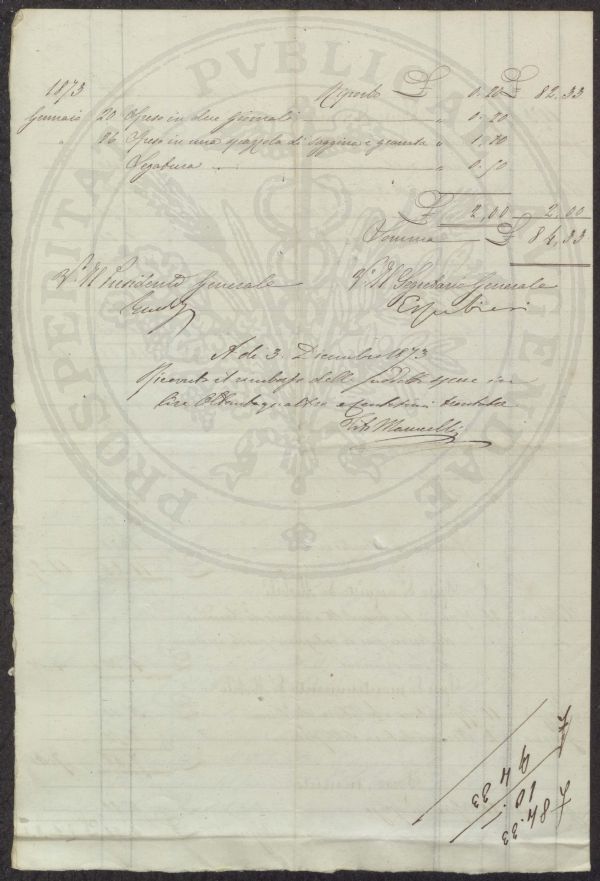 1873 Riporto £ 0.20 £ 82.33
Gennaio 20 Speso in due giornali " 0.20
" 26 Speso in una spazzola di saggina e granata " 1.10
Legatura " 0.50
£ 2,00 2.00
Somma £ 84,33
Vo Il Presidente Generale Vo Il Segretario Generale
A di 3. Dicembre 1873
Ricevuto il rimborso delle suddette spese in
Lire Ottantaquattro e centesimi trentatre
Mancelli
PROSPERITATI PVBLICAE
£ 84.33
10.1
£ 94 33